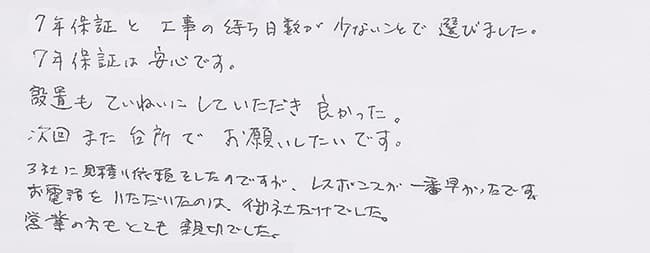 7年保証と工事の待ち日数が少ないことで選びました。
7年保証は安心です。
設置もていねいにしていただき良かった。
次回また台所でお願いしたいです。
3社に見積り依頼をしたのですが、レスポンスが一番早かったです。
お電話をいただいたのは、御社だけでした。
営業の方もとても親切でした。